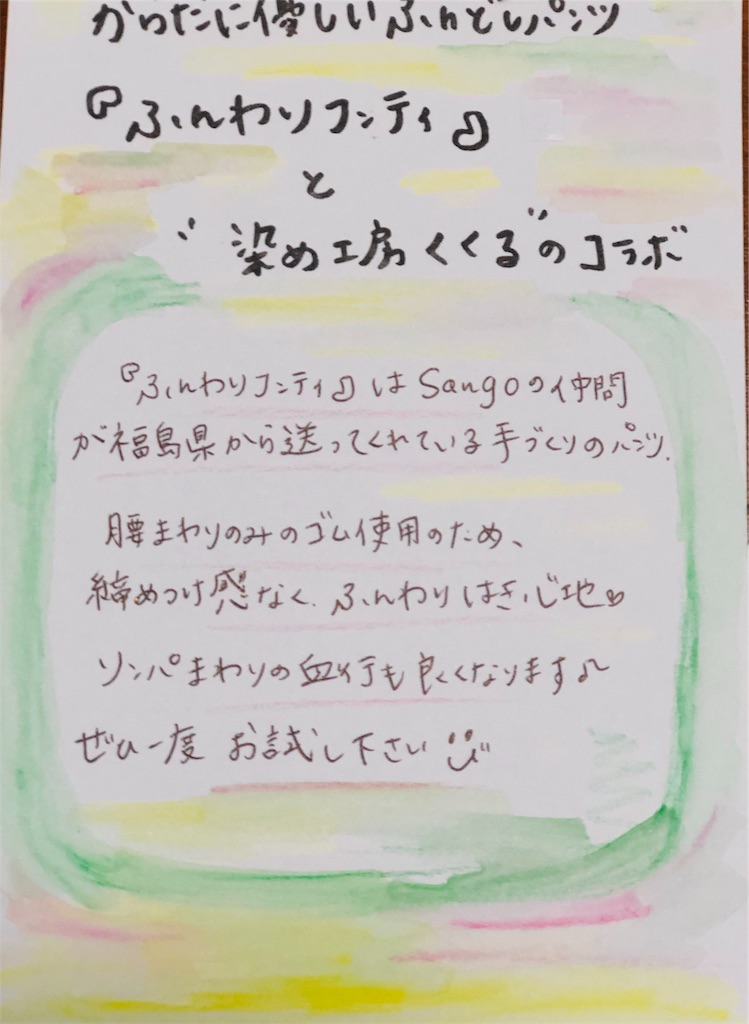 からだに優しいふんどしパンツ
『ふんわりフンティ』
と
"染め工房くくる"のコラボ
『ふんわりフンティ』はSangoの仲間
が福島県から送ってくれている手づくりのパンツ.
腰まわりのみのゴム使用のため、
締めつけ感なく、ふんわりはき心地♡
リンパまわりの血行も良くなります♪
ぜひ一度 お試し下さい